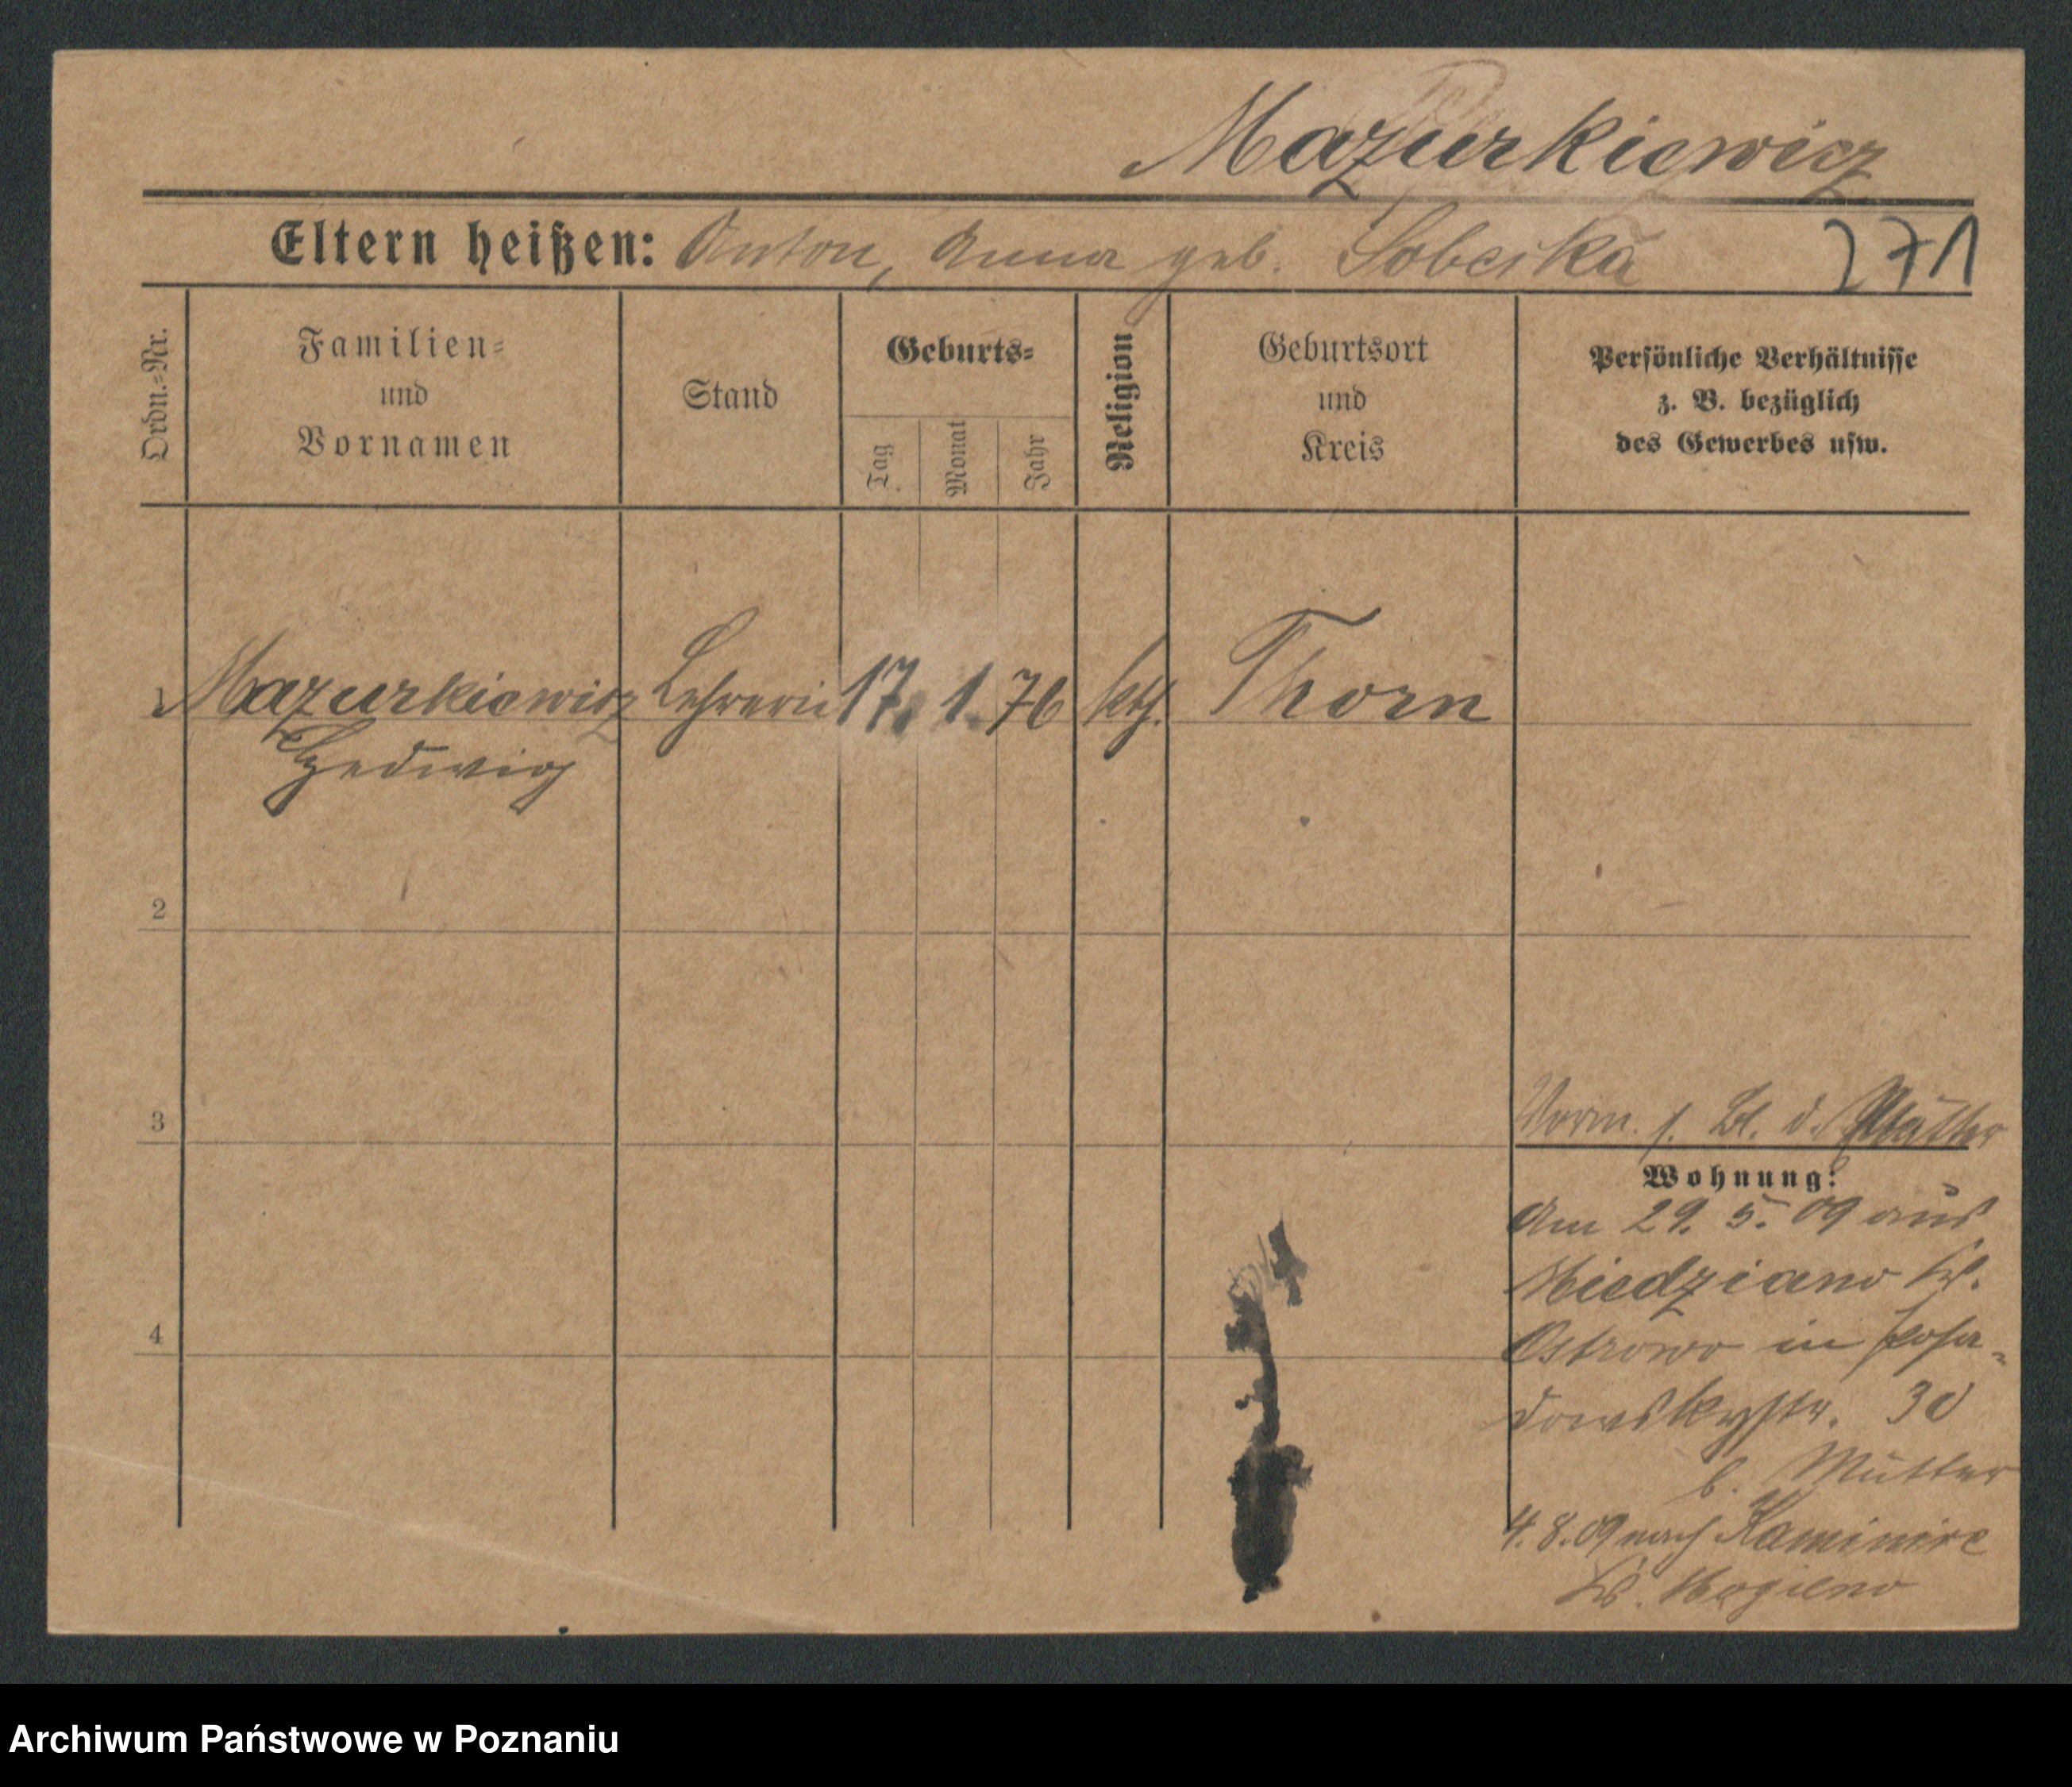 Mazurkiewicz
Eltern heißen: Anton, Anna geb. Sobeska
271
Ordn.-Nr.
Familien-
und
Vornamen
Stand
Geburts-
Tag
Monat
Jahr
Religion
Geburtsort
und
Kreis
Persönliche Verhältnisse
z. B. bezüglich
des Gewerbes usw.
1 Mazurkiewicz Lehrerin 17. 1. 76 kth. Thorn
Hedwig
2
3
4
Vorm. s. Bl. d. Mutter
Wohnung:
Am 29. 5. 09 aus
Miedzianow Kr.
Ostrowo in Posa-
dowskystr. 30
b. Mutter
4. 8. 09 nach Kaminiec
Kr. Mogilno
Archiwum Państwowe w Poznaniu